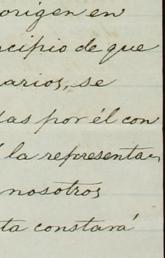 origen en
cipio de que
arios, se
das por él con
la representa-
nosotros
ta constará